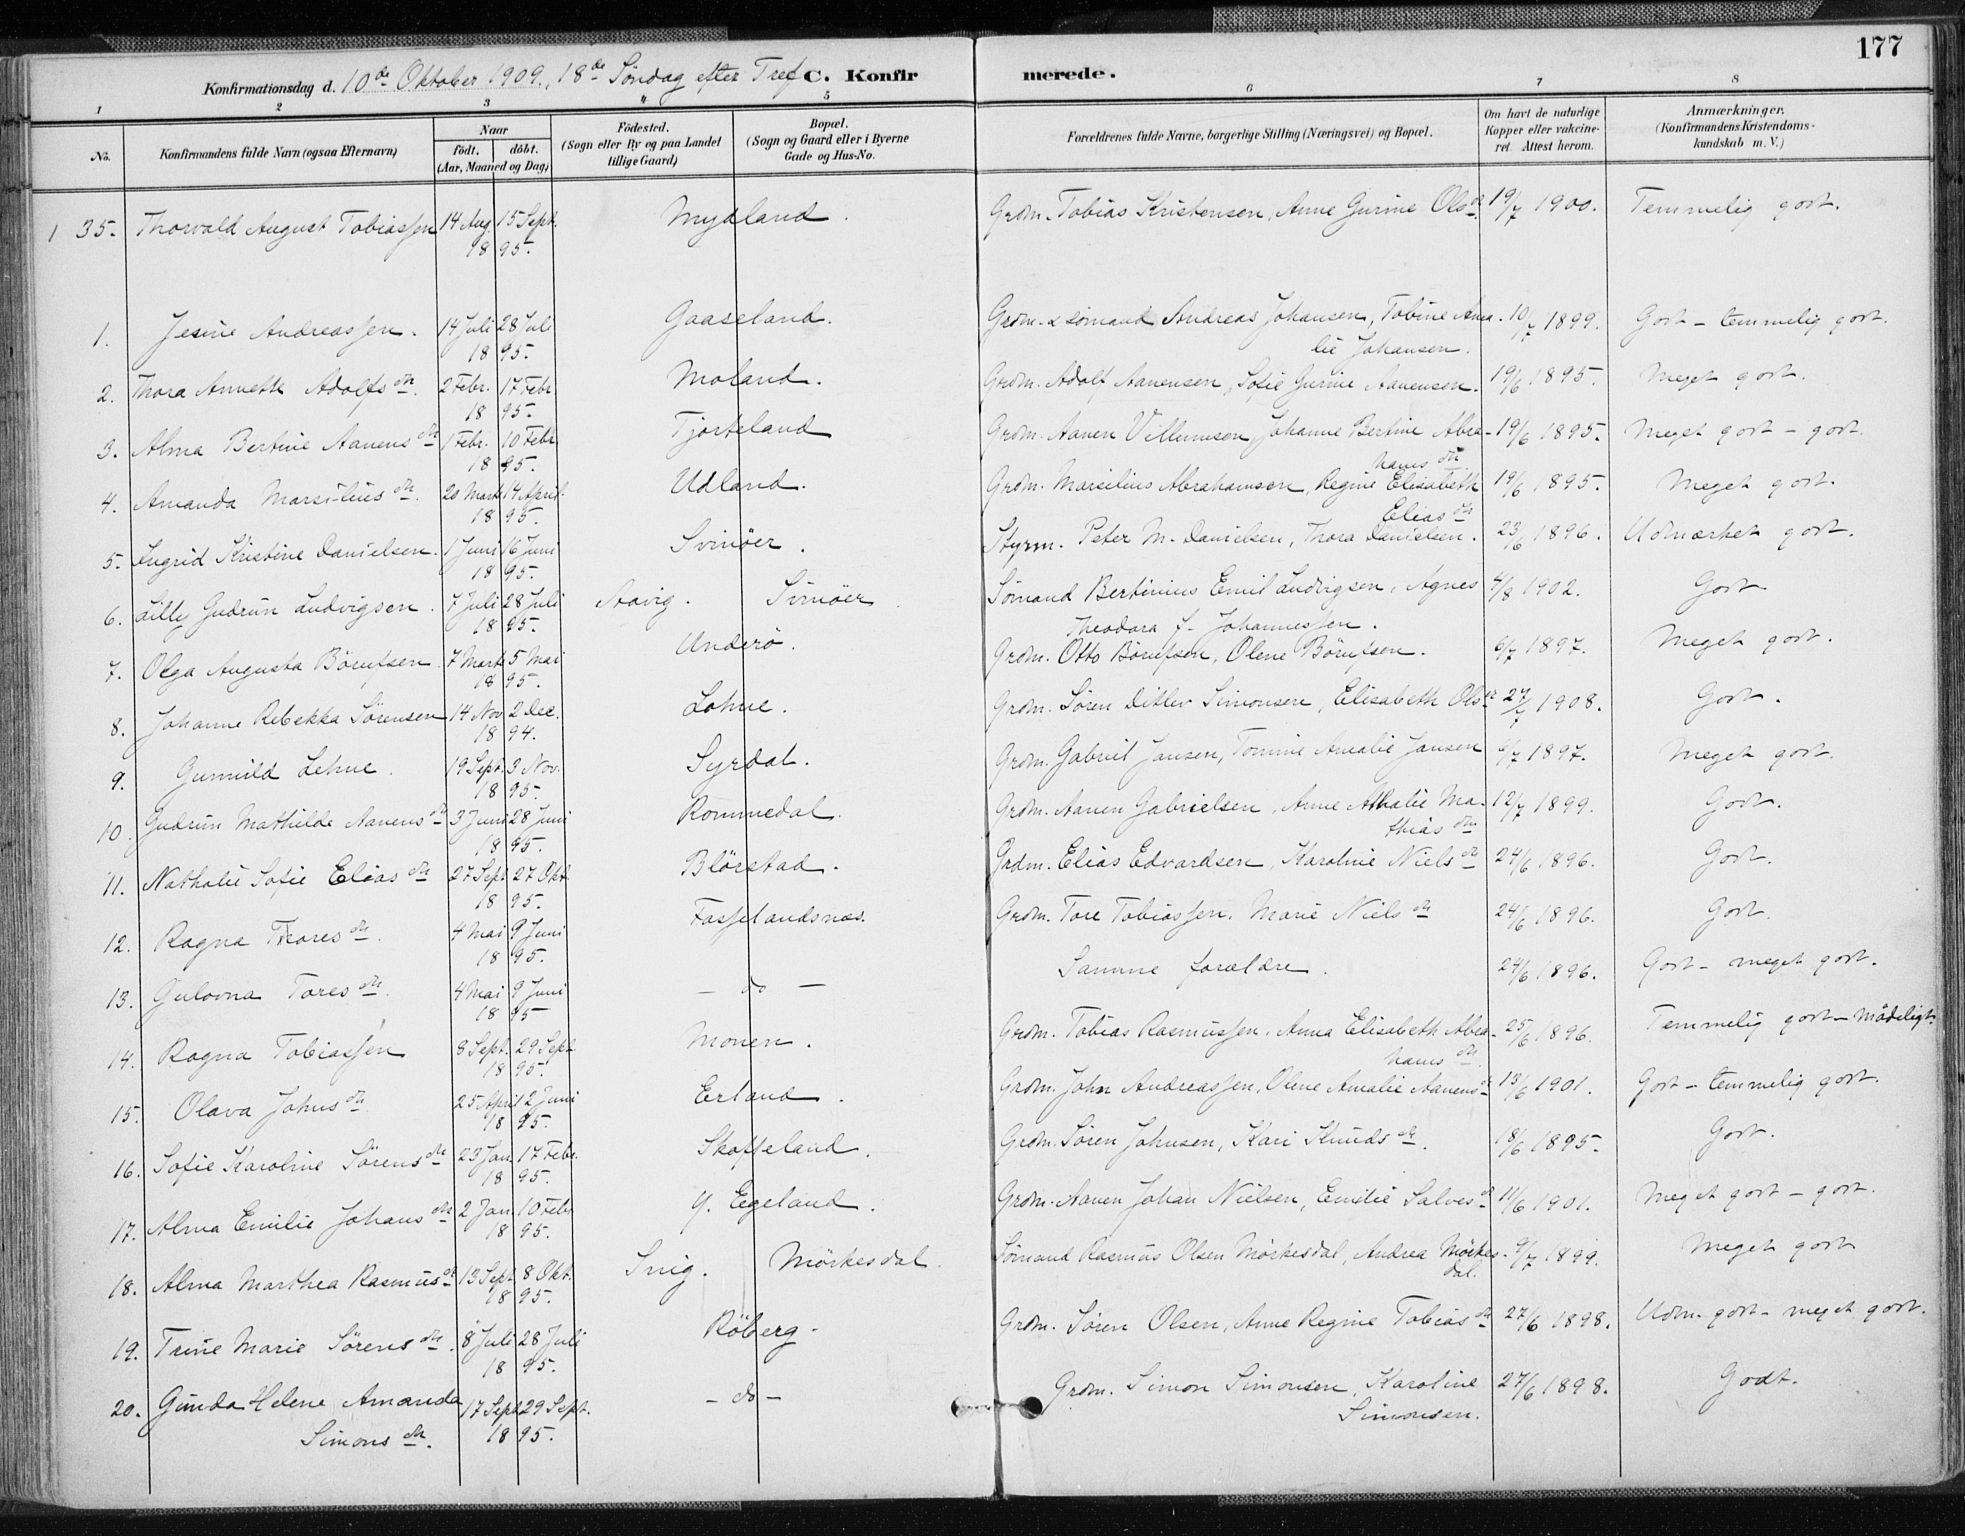 177
Konfirmationsdag d. 10de Oktober 1909., 18de Søndag efter Tref C. Konfirmerede.
1 2 3 " 5 6 7 8
No. Konfirmandens fulde Navn (ogsaa Efternavn) Naar født. døbt. (Aar, Maaned og Dag) Fødested. (Sogn eller By og paa Landet tillige Gaard) Bopæl. (Sogn og Gaard eller i Byerne Gade og Hus-No. Forældrenes fulde Navne, borgerlige Stilling (Næringsvei) og Bopæl. Om havt de naturlige Kopper eller vakcineret. Attest herom. Anmærkninger. (Konfirmandens Kristendomskundskab m. V.)
1 35. Thorvald August Tobiassen 14 Aug. 15 Sept. 1895. Mydland. Grdm. Tobias Kristensen, Anne Gurine Olsdr 19/7 1900. Temmelig godt.
1. Jesine Andreassen. 14 Juli 28 Juli 1895. Gaaseland. Grdm. & sømand Andreas Johansen, Tobine Ama- 10/7 1899. Godt - temmelig godt.
lie Johansen.
2. Thora Annette Adolfsdtr. 2 Febr. 17 Febr 1895. Moland. Grdm. Adolf Aanensen, Sofie Gurine Aanensen. 19/6 1895. Meget godt.
3. Alma Bertine Aanensdtr 1 Febr. 10 Febr 1895. Tjorteland Grdm. Aanen Villumsen, Johanne Bertine Abra- 19/6 1895. Meget godt - godt.
hamsdtr
4. Amanda Marsiliusdtr. 20 Marts 14 April. 1895. Udland. Grdm. Marsilius Abrahamsen, Regine Elisabeth 19/6 1895. Meget godt.
Eliasdtr
5. Ingrid Kristine Danielsen. 1 Juni 16 Juni 1895. Svinøer. Styrm. Peter M. Danielsen, Thora Danielsen. 23/6 1896. Udmærket godt.
6. Lilly Gudrun Ludvigsen. 7 Juli 28 Juli 1895. Aavig. Svinøer Sømand Bertinius Emil Ludvigsen, Agnes 4/8 1902. Godt
Theodora f. Johannessen.
7. Olga Augusta Börufsen. 7 Marts 5 Mai 1895. Underö. Grdm. Otto Börufsen, Olene Börufsen. 6/7 1897. Meget godt.
8. Johanne Rebekka Sørensen 14 Nov 2 Dec. 1894. Lohne. Grdm. Søren Ditlev Simonsen, Elisabeth Olsdr 27/7 1908. Godt.
9. Gunnild Lehne. 19 Sept. 3 Nov. 1895. Syrdal. Grdm. Gabriel Jansen, Tomine Amalie Jansen 6/7 1897. Meget godt.
10. Gudrun Mathilde Aanensdtr 3 Juni 28 Juni 1895. Rommedal. Grdm. Aanen Gabrielsen, Anne Athalie Ma- 12/7 1899. Godt.
thiasdtr
11. Nathalie Sofie Eliasdtr 27 Sept 27 Okt. 1895. Blörstad. Grdm. Elias Edvardsen, Karoline Nielsdtr 24/6 1896. Godt.
12. Ragna Thoresdtr. 4 Mai 9 Juni 1895. Fasselandsnæs. Grdm. Tore Tobiassen, Marie Nielsdtr 24/6 1896. Godt.
13. Gulovna Toresdtr. 4 Mai 9 Juni 1895 - do - Samme forældre. 24/6 1896. Godt - meget godt.
14. Ragna Tobiassen 8 Sept. 29 Sept. 1895. Monen. Grdm. Tobias Rasmussen, Anna Elisabeth Abra- 25/6 1896. Temmelig godt - Mådeligt.
hamsdtr.
15. Olava Johnsdtr. 25 April 2 Juni 1895. Erland. Grdm. John Andreassen, Olene Amalie Aanensdr 13/6 1901. Godt - temmelig godt.
16. Sofie Karoline Sørensdtr 23 Jan. 17 Febr. 1895. Skoffeland. Grdm. Søren Johnsen, Kari Knudsdtr. 18/6 1895. Godt.
17. Alma Emilie Johansdtr 2 Jan. 10 Febr 1895. Y. Egeland. Grdm. Aanen Johan Nielsen, Emilie Salvesdr 11/6 1901. Meget godt - godt.
18. Alma Marthea Rasmusdtr 13 Sept 8 Okt. 1895. Snig. Mörkesdal. Sømand Rasmus Olsen Mörkesdal, Andrea Mörkes- 9/7 1899. Meget godt
dal.
19. Trine Marie Sørensdtr. 8 Juli 28 Juli 1895. Röberg. Grdm. Søren Olsen, Anne Regine Tobiasdtr 27/6 1898. Udm. godt - meget godt.
20. Gunda Helene Amanda 17 Sept 29 Sept. 1895. - do - Grdm. Simon Simonsen, Karoline 27/6 1898. Godt.
Simonsdtr. Simonsen.